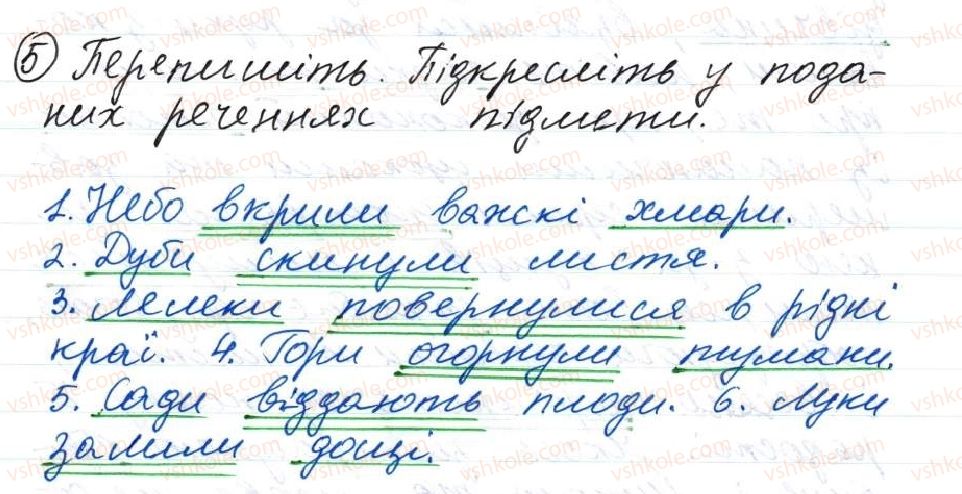 5 Перепишіть. Підкресліть у пода-
них реченнях підмети.
1. Небо вкрили важкі хмари.
2. Дуби скинули листя.
3. Лелеки повернулися в рідні
краї. 4. Гори огорнули тумани.
5. Сади віддають плоди. 6. Луки
залили дощі.